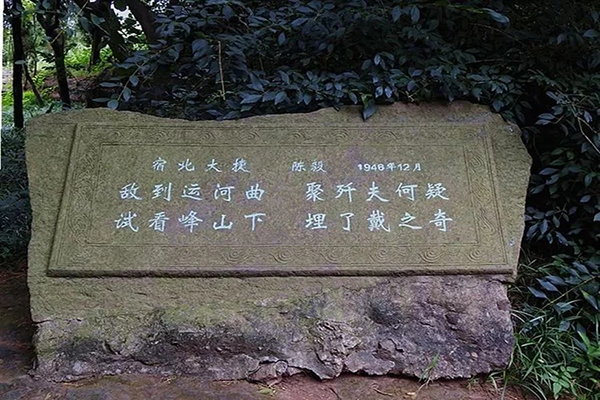 宿北大捷 陈毅 1946年12月
敌到运河曲 聚歼夫何疑
试看峰山下 埋了戴之奇